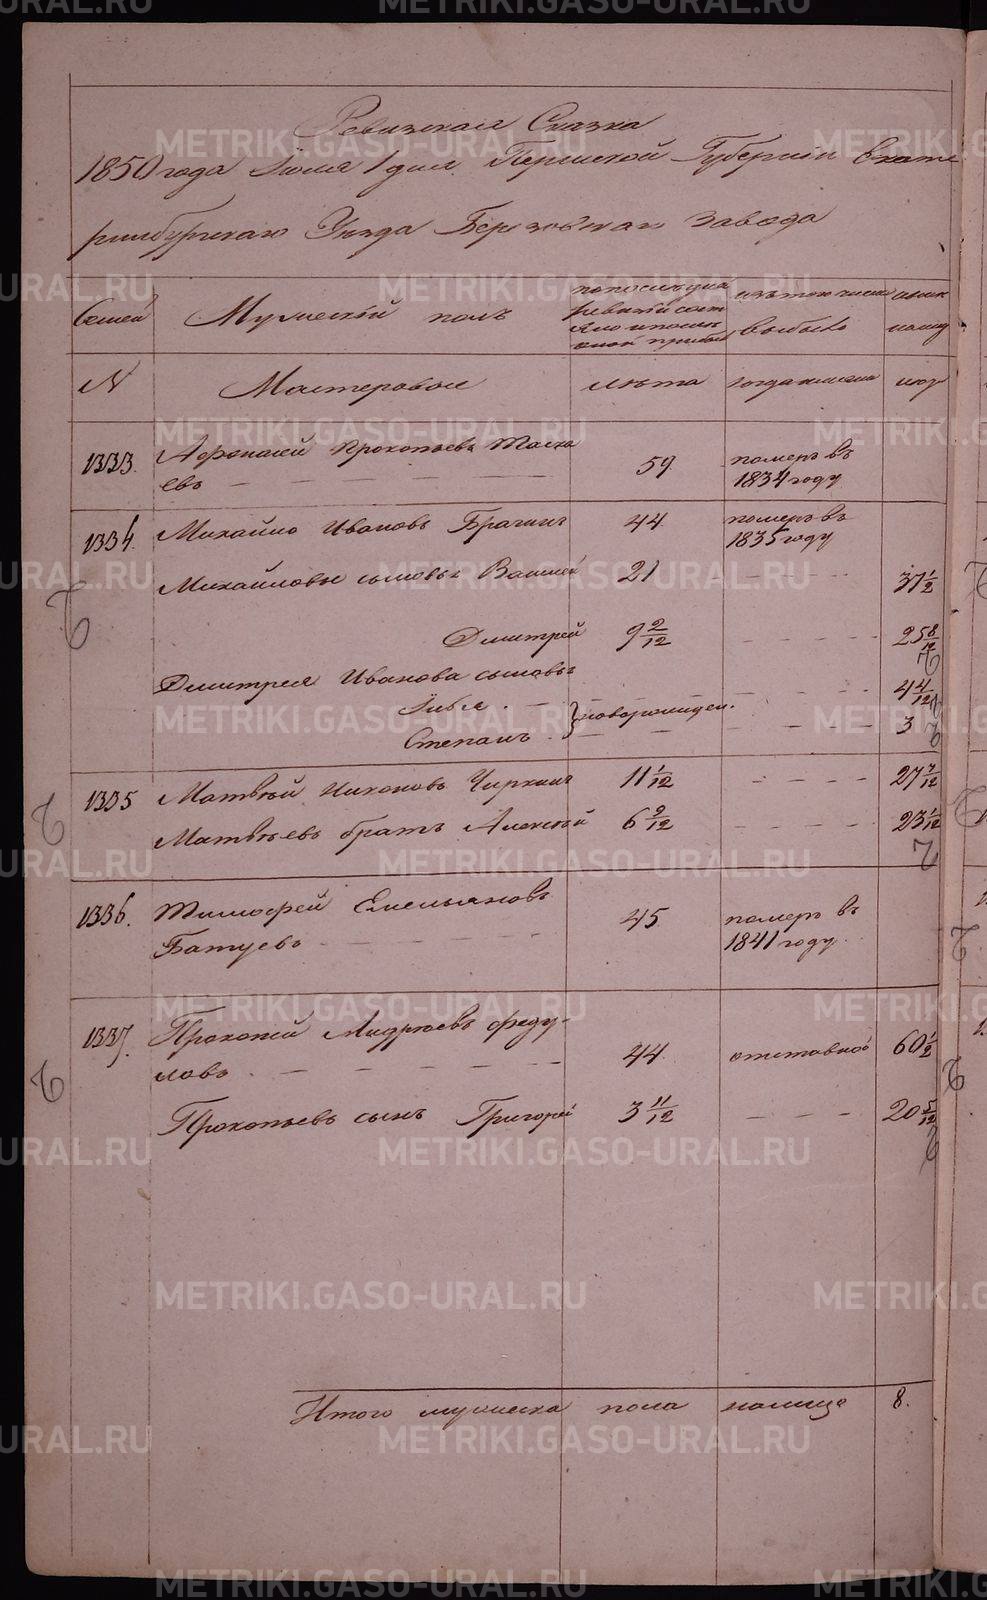 Ревизская Сказка
1850 года Iюля 1 дня Пермской Губернiи Екате
ринбургскаго Уезда Березовскаго завода
Семей Мужескiй полъ по последней ревизiи состояло и после оной прибыло изъ того числа выбыло ныне на лицо
N Мастеровые лета когда именно лета
1333. Афонасей Прокопьевъ Таска 59 померъ въ
евъ 1834 году
1334. Михайло Ивановъ Брагинъ 44 померъ въ
1835 году
Михайловы сыновья Василей 21 37 1/2
Дмитрей 9 2/12 25 8/12
Дмитрея Иванова сыновья 4 4/12
новорожден.
Степанъ 3
1335 Матвей Никоновъ Чиркинъ 11 1/12 27 7/12
Матвеевъ братъ Алексей 6 9/12 23 1/12
1336. Тимофей Емельяновъ 45 померъ въ
Батуевъ 1841 году
1337. Прокопей Андреевъ Феду-
ловъ 44 отставной 60 1/2
Прокопьевъ сынъ Григорей 3 11/12 20 5/12
Итого мужеска пола налице 8.
METRIKI.GASO-URAL.RU